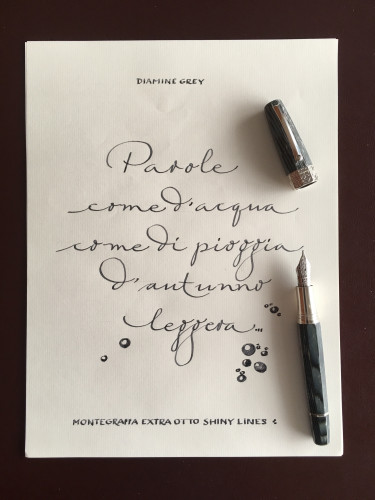 DIAMINE GREY
Parole
come d'acqua
come di pioggia
d'autunno
leggera...
MONTEGRAPPA EXTRA OTTO SHINY LINES